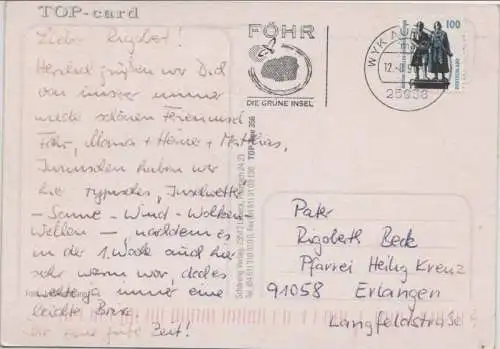 TOP-card
Lieber Rigobert!
Herzlich grüßen wir Dich
von unserer immer
wieder schönen Ferieninsel
Föhr, Mama + Heiner + Matthias,
Inzwischen haben wir
hier typisches „Inselwetter“
– Sonne – Wind – Wolken
Wellen – nachdem es
in der 1. Woche auch hier
sehr warm war, doch es
weht immer eine
leichte Brise.
Dir eine gute Zeit!
FÖHR
DIE GRÜNE INSEL
WYK AUF
12.-8.9
25938
100
DEUTSCHLAND
Schöning Verlag
TOP Föhr 356
Pater
Rigoberth Beck
Pfarrei Heilig Kreuz
91058 Erlangen
Langfeldstraße